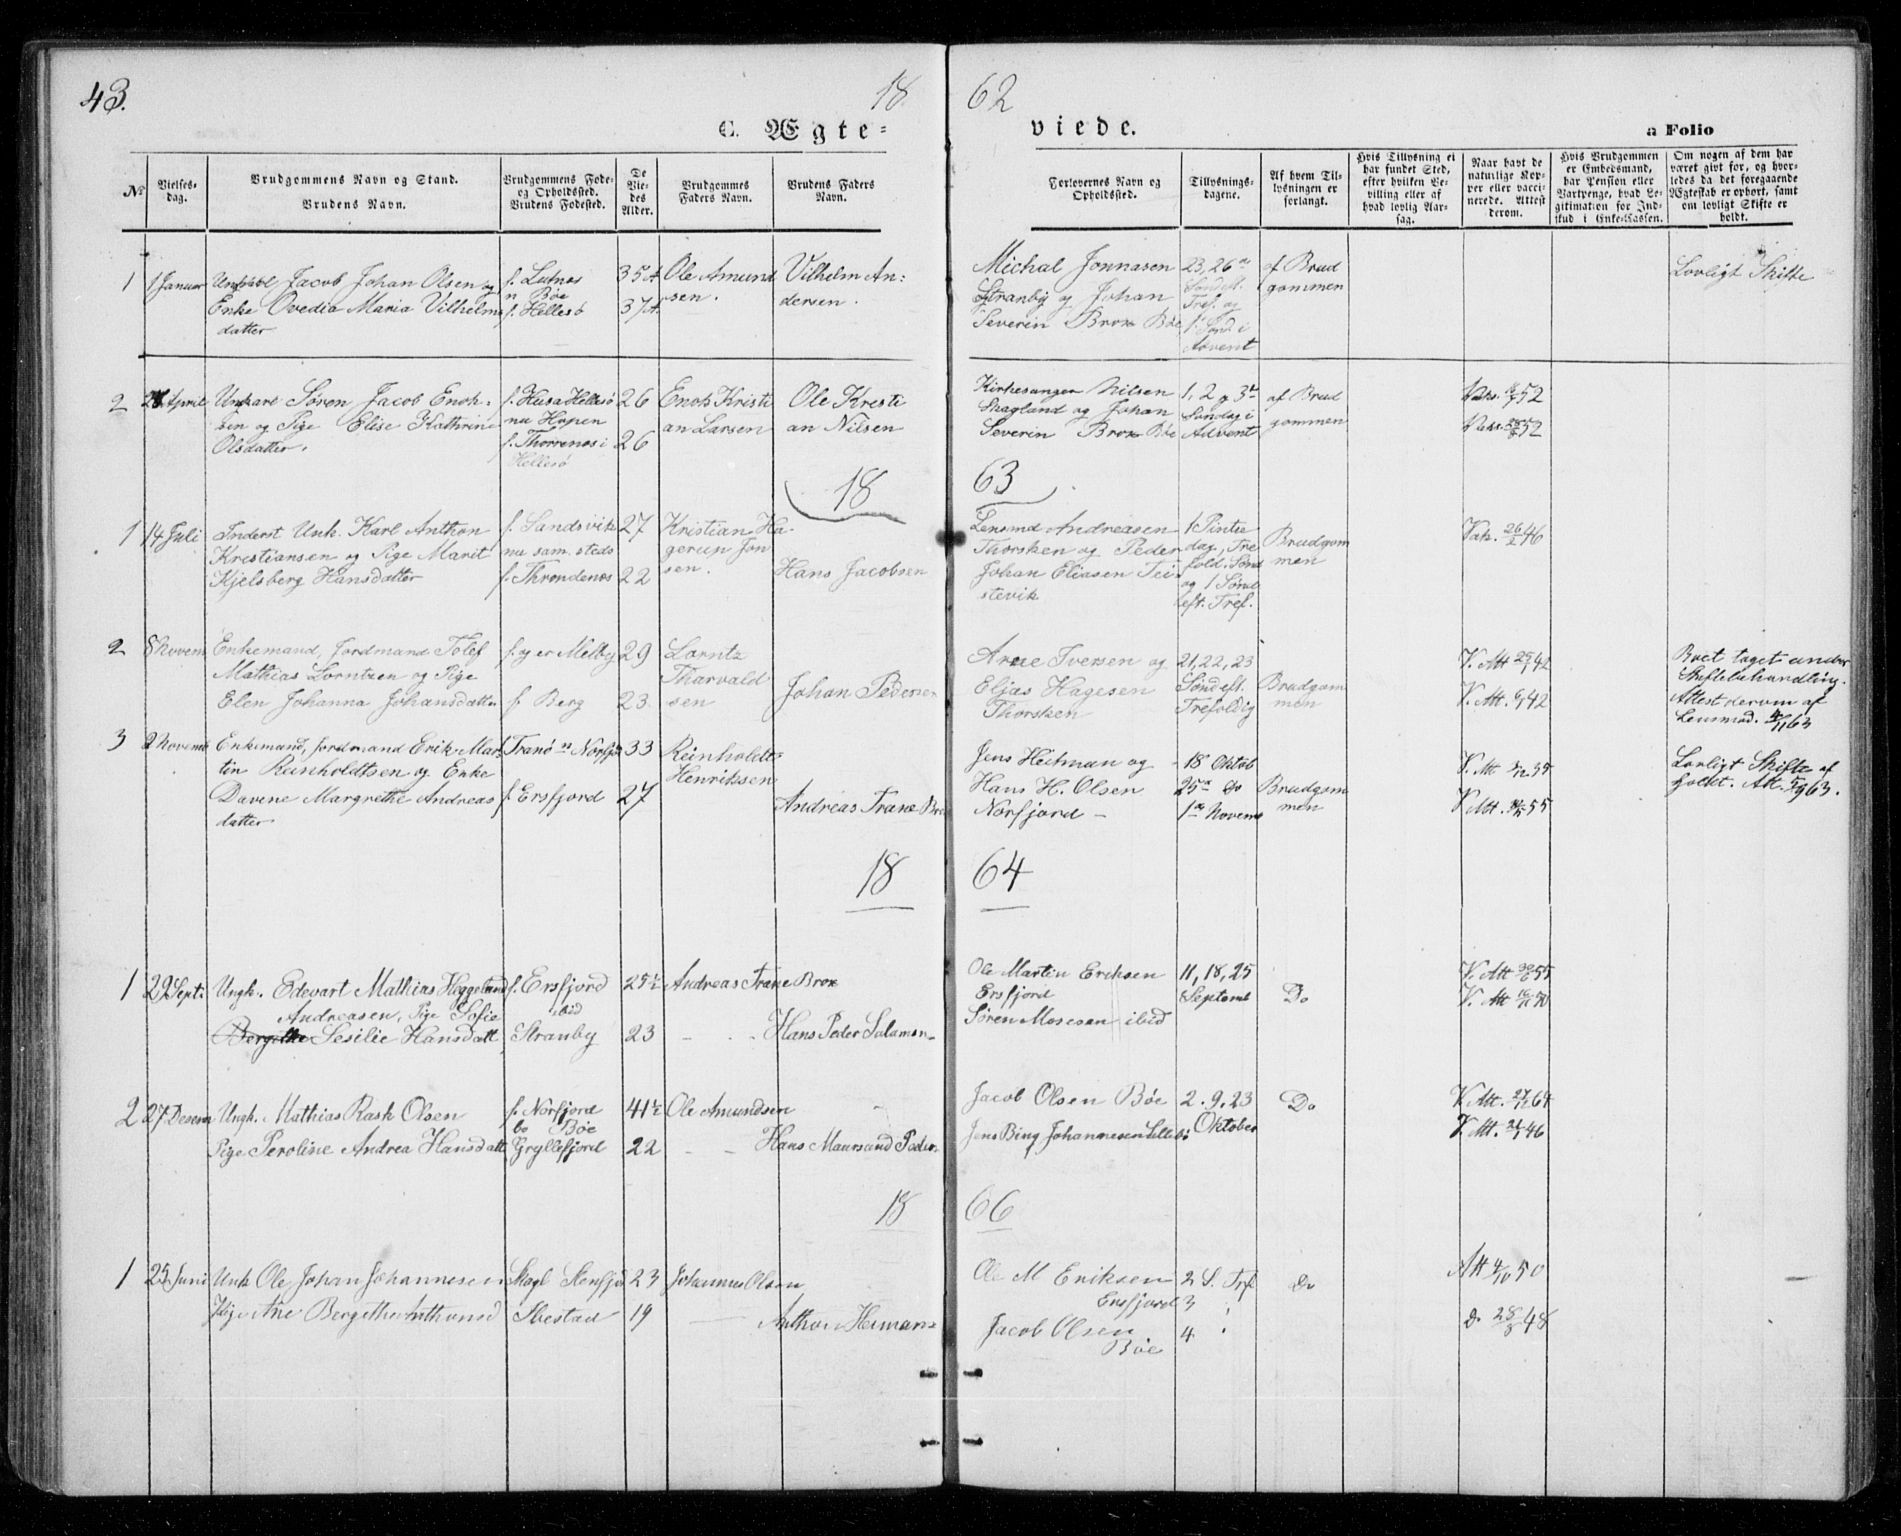 43.
18 62
C. Ægteviede.
a Folio
No
Vielsesdag.
Brudgommens Navn og Stand.
Brudens Navn.
Brudgommens Fødeog Opholdssted.
Brudens Fødested.
De Viedes Alder.
Brudgommens Faders Navn.
Brudens Faders Navn.
Forlovernes Navn og Opholdssted.
Tillysningsdagene.
Af hvem Tillysningen er forlangt.
Hvis Tillysning ei har fundet Sted, efter hvilken Bevilling eller af hvad lovlig Aarsag.
Naar havt de naturlige Kopper eller vaccinerede. Attest derom.
Hvis Brudgommen er Embedsmand, har Pension eller Vartpenge, hvad Legitimation for Indskud i Enke-Kassen.
Om nogen af dem har været givt før, og hvorledes da det foregaaende Ægteskab er ophørt, samt om lovligt Skifte er holdt.
1 1 Januar
Ungkarl Jacob Johan Olsen og
Enke Ovedia Maria Vilhelms
datter
f. Lutnes
n Bøe
f. Hellesö
35 A
37 A
Ole Amund
sen.
Vilhelm An:
dersen.
Michal Jonnasen
Stranby og Johan
Severin Brox Bøe
23, 26 a
Søndeft.
Tref. og
1. Sønd i
Advent
af Brud
gommen
Lovligt Skifte
2 April
Unkarl Søren Jacob Enok-
sen og Pige Elise Kathrine
Olsdatter.
f. Husa Hellesö
nu Hopen
f. Thorrenes i
Hellesö
26
26
Enok Kristi
an Larsen
Ole Kristi
an Nilsen
Kirkesanger Nilsen
Skagland og Johan
Severin Brox Bøe
1, 2 g 3 de
Søndag i
Advent
af Brud
gommen
52
52
18 63
1 14 Juli
Inderst Unk. Karl Anthon
Kristiansen og Pige Marit
Kjelsberg Hansdatter
f. Sandsvik
nu sam. steds
f. Throndenes
27
22
Kristian Ha-
gerup Jon
sen.
Hans Jacobsen
Lensmd Andreasen
Thorsken og Peder
Johan Eliasen Tei-
stevik
1 Pintse
dag, Tre
fold. Sønd
og 1 Sønd
eft. Tref.
Brudgom
men
Vak. 26/2 46
2 8 Novem
Enkemand, Jordmand Tolef
Mathias Lorntzen og Pige
Elen Johanna Johansdatter
f. og er Melby
f. Berg
29
23
Lorntz
Tharvald
sen
Johan Pedersen
Arne Iversen og
Eljas Hagesen
Thorsken
21, 22, 23
Søndeft.
Trefoldig
Brudgom
men
V. Att 42
V. Att. 42
Boet taget under
Skiftebehandling.
Attest derom af
Lensmd. 63
3 2 Novem
Enkemand, Jordmand Erik Mar-
tin Reinholdtsen og Enke
Davene Margrethe Andreas
datter
Tranö n Norfjo
f. Ersfjord
33
27
Reinholdt
Henriksen
Andreas Trane Bro
Jens Heitman og
Hans H. Olsen
Norfjord -
18 Oktob
25 a do
1 a Novem
Brudgom
men
V. Att 35
V Att. 55
Lovligt Skifte af
holdt. Att. 63.
18 64
1 29 Septr
Ungk. Edevart Mathias Heggelund
Andreasen, Pige Sofie
Bergithe Sesilie Hansdatt
f. Ersfjord
ibid
Stranby
25 ½
23
Andreas Trane Brox
Hans Peder Salamon-
Ole Martin Eriksen
Ersfjord
Søren Mosesen ibid
11, 18, 25
Septemb
Do
V. Att 55
V. Att
2 27 Desem
Ungk. Mathias Rask Olsen
Pige Peroline Andrea Hansdatt
f. Norfjord
bo Bøe
Gryllefjord
41 ½
22
Ole Amundsen
Hans Maursund Peder-
Jacob Olsen Bøe
Jens Bing Johannesen Lillebö
2. 9. 23
Oktober
Do
V. Att. 64
V. Att. 46
18 66
1 25 Juni
Unk Ole Johan Johannesen
Pige Ane Bergethe Anthonsd
Skagl Stenfjo
Ibestad
23
19
Johannes Olsen
Anthon Herman-
Ole M Eriksen
Ersfjord
Jacob Olsen
Bøe
2 S. Tref
3 "
4 "
Do
Att 4/10 50
d. 28/8 48